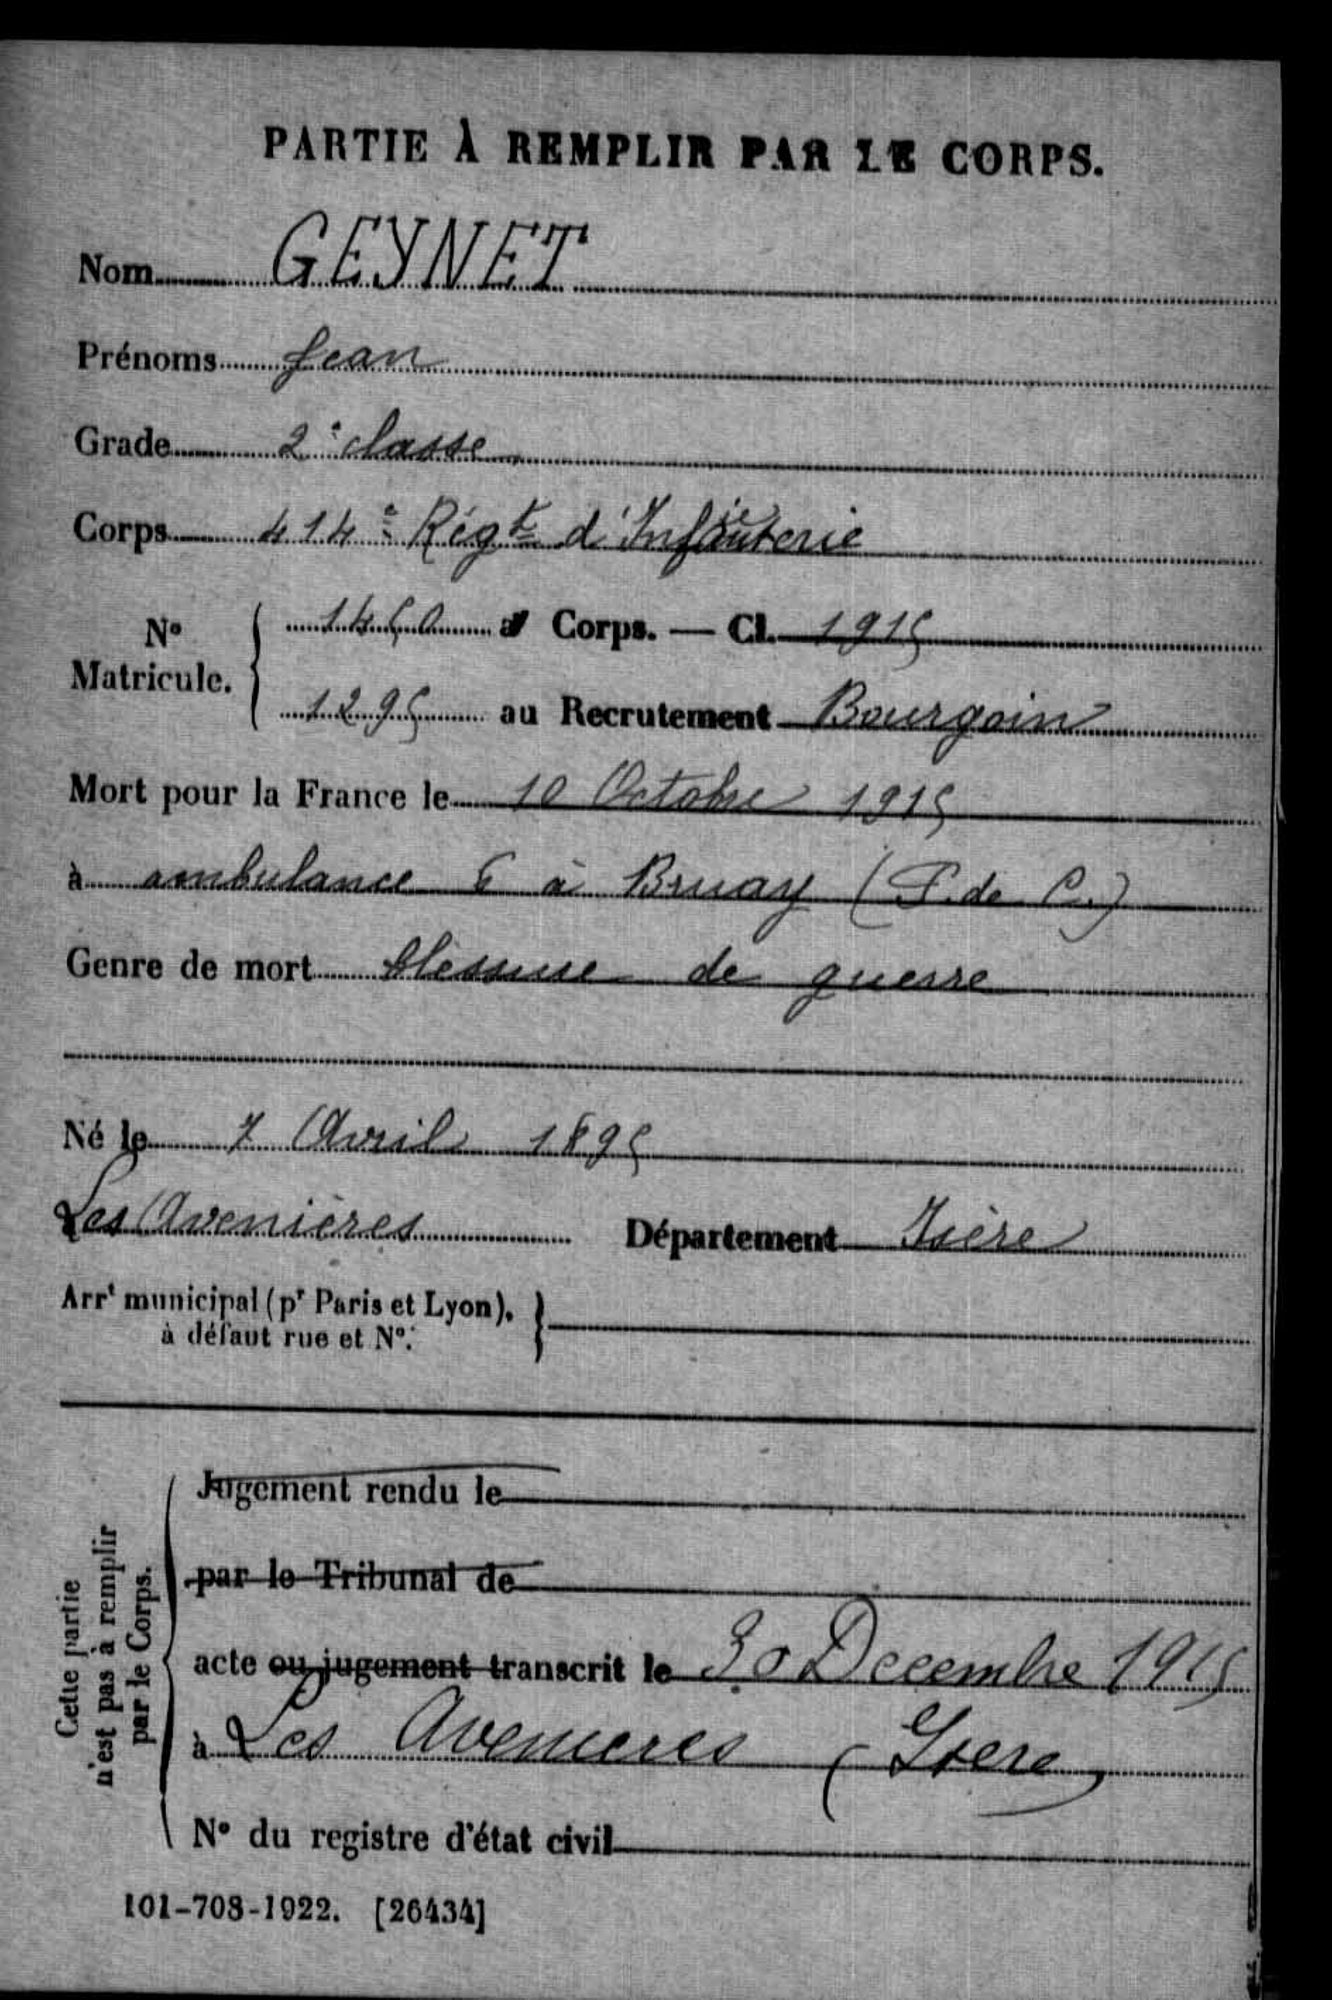 PARTIE À REMPLIR PAR LE CORPS.
Nom GEYNET
Prénoms Jean
Grade 2e classe
Corps 414e Régt d'Infanterie
N° Matricule. 1450 au Corps. — Cl. 1915
1295 au Recrutement Bourgoin
Mort pour la France le 10 Octobre 1915
à ambulance 6 à Bruay (P. de C.)
Genre de mort blessure de guerre
Né le 7 Avril 1895
Les Avenières Département Isère
Arrt municipal (pr Paris et Lyon),
à défaut rue et N°.
Cette partie
n'est pas à remplir
par le Corps.
Jugement rendu le
par le Tribunal de
acte ou jugement transcrit le 30 Decembre 1915
à Les Avenieres (Isere)
N° du registre d'état civil
101-708-1922. [26434]